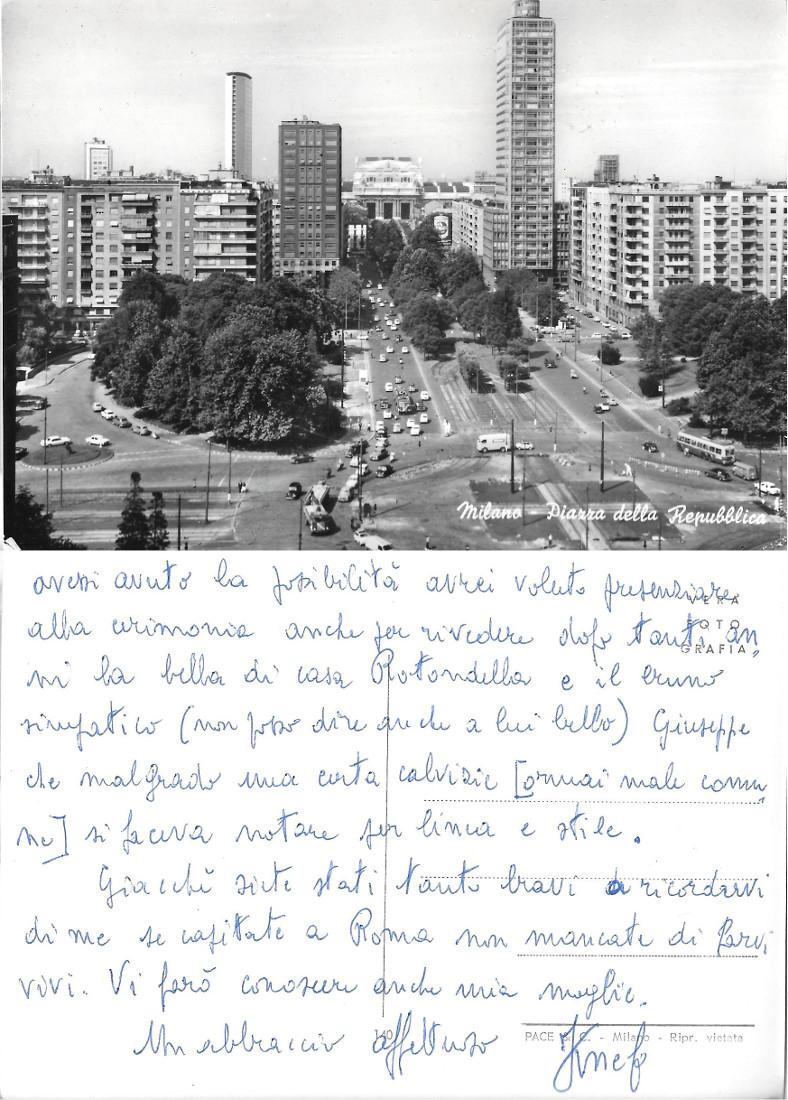 Milano - Piazza della Repubblica
VERA
FOTO
GRAFIA
avessi avuto la possibilità avrei voluto presenziare
alla cerimonia anche per rivedere dopo tanti an,
ni la bella di casa Rotondella e il
simpatico (non posso dire anche a lui bello) Giuseppe
che malgrado una certa calvizie [ormai male comu,
ne] si faceva notare per linea e stile.
Giacchè siete stati tanto bravi a ricordarvi
di me se capitate a Roma non mancate di farvi
vivi. Vi farò conoscere anche mia moglie.
Un abbraccio affettuoso
PACE & C. - Milano - Ripr. vietata